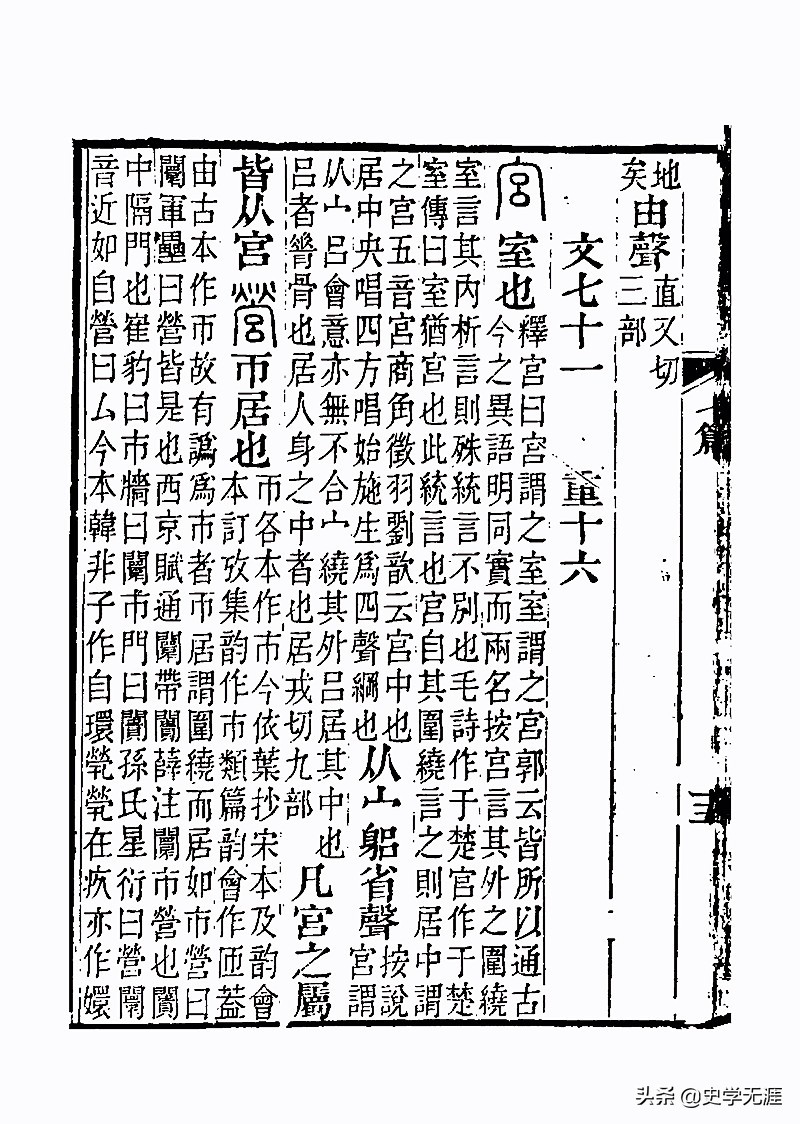 地矣由聲直又切三部
文七十一 重十六
宮 室也 釋宮曰宮謂之室室謂之宮郭云皆所以通古
今之異語明同實而兩名按宮言其外之圍繞
室言其內析言則殊統言不別也毛詩作于楚宮作于楚
室傳曰室猶宮也此統言也宮自其圍繞言之則居中謂
之宮五音宮商角徵羽劉歆云宮中也
居中央唱四方唱始施生爲四聲綱也
从宀躳省聲 按說
宮謂
从宀呂會意亦無不合宀繞其外呂居其中也
呂者脊骨也居人身之中者也居戎切九部
凡宮之屬
皆从宮 營 帀居也 帀各本作市今依葉抄宋本及韵會
本訂攷集韵作市類篇韵會作匝葢
由古本作帀故有譌爲市者帀居謂圍繞而居如市營曰
闤軍壘曰營皆是也西京賦通闤帶闠薛注闤市營也闠
中隔門也崔豹曰市牆曰闤市門曰闠孫氏星衍曰營闤
音近如自營曰厶今本韓非子作自環煢煢在疚亦作嬛
头条 @史学无涯